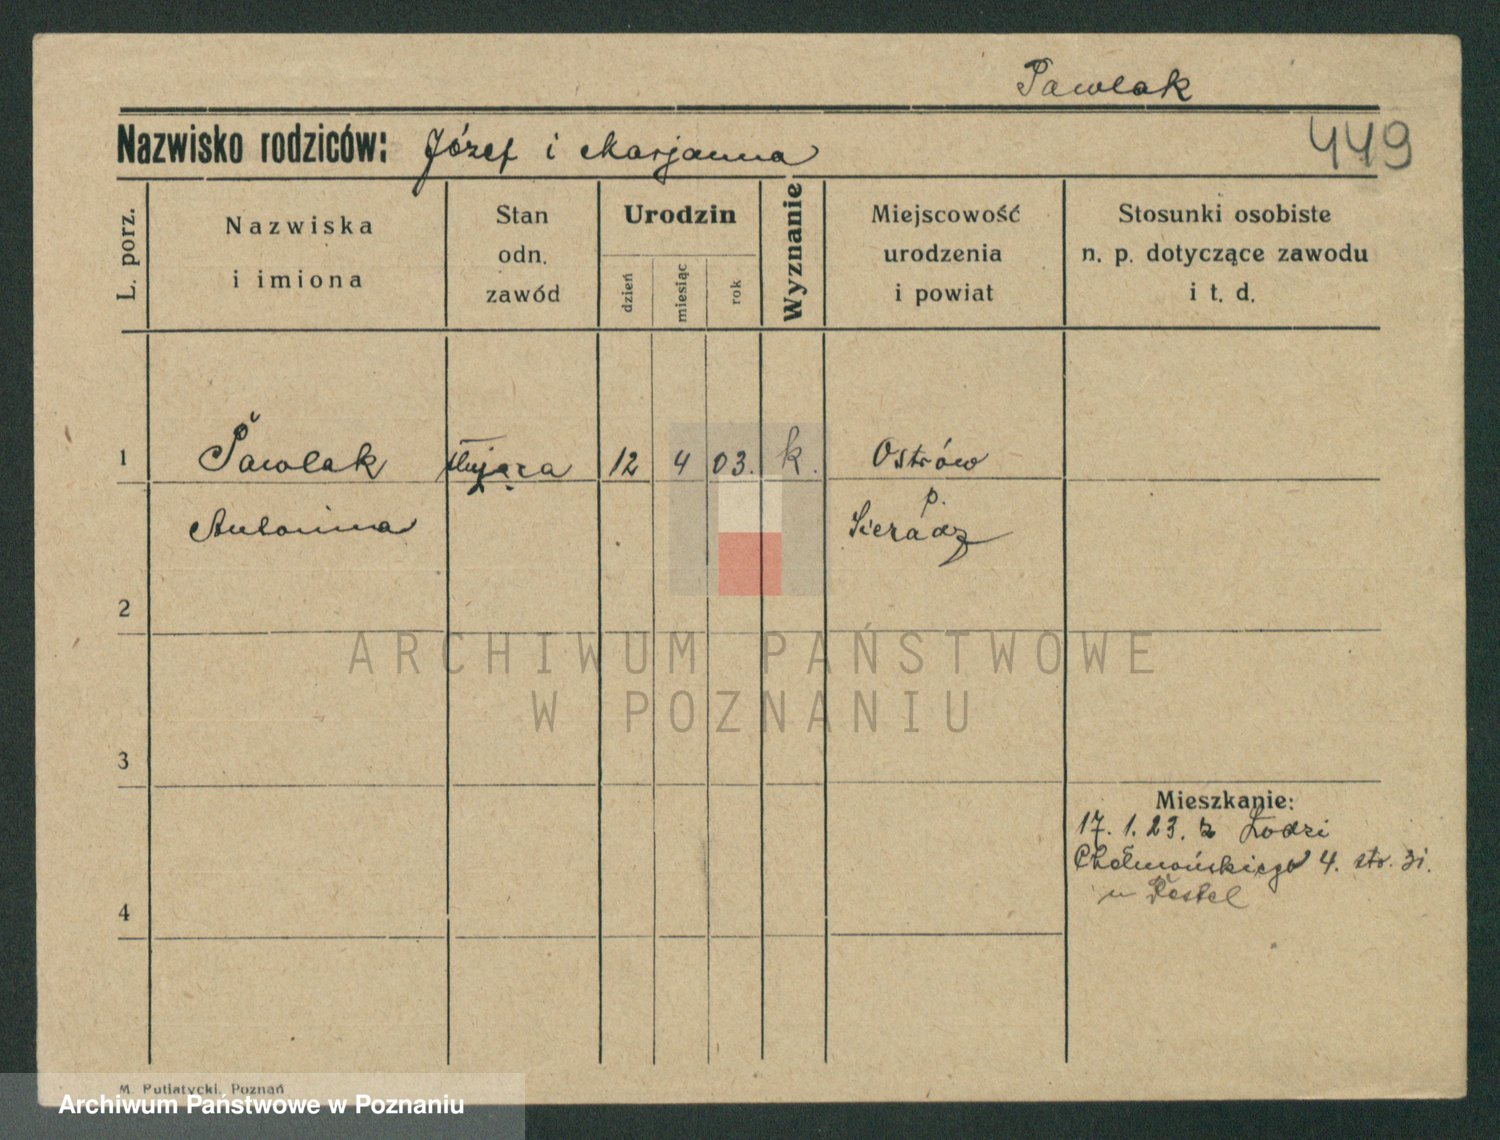 Pawlak
Nazwisko rodziców: Józef i Marjanna
449
L. porz.
Nazwiska
i imiona
Stan
odn.
zawód
Urodzin
dzień
miesiąc
rok
Wyznanie
Miejscowość
urodzenia
i powiat
Stosunki osobiste
n. p. dotyczące zawodu
i t. d.
1 Pawlak służąca 12 4 03. k. Ostrów
Antonina p.
Sieradz
2
ARCHIWUM PAŃSTWOWE
W POZNANIU
3
Mieszkanie:
17. 1. 23. z Łodzi
Chełmońskiego 4. str. 3i.
u Pestel
4
M. Putiatycki, Poznań
Archiwum Państwowe w Poznaniu